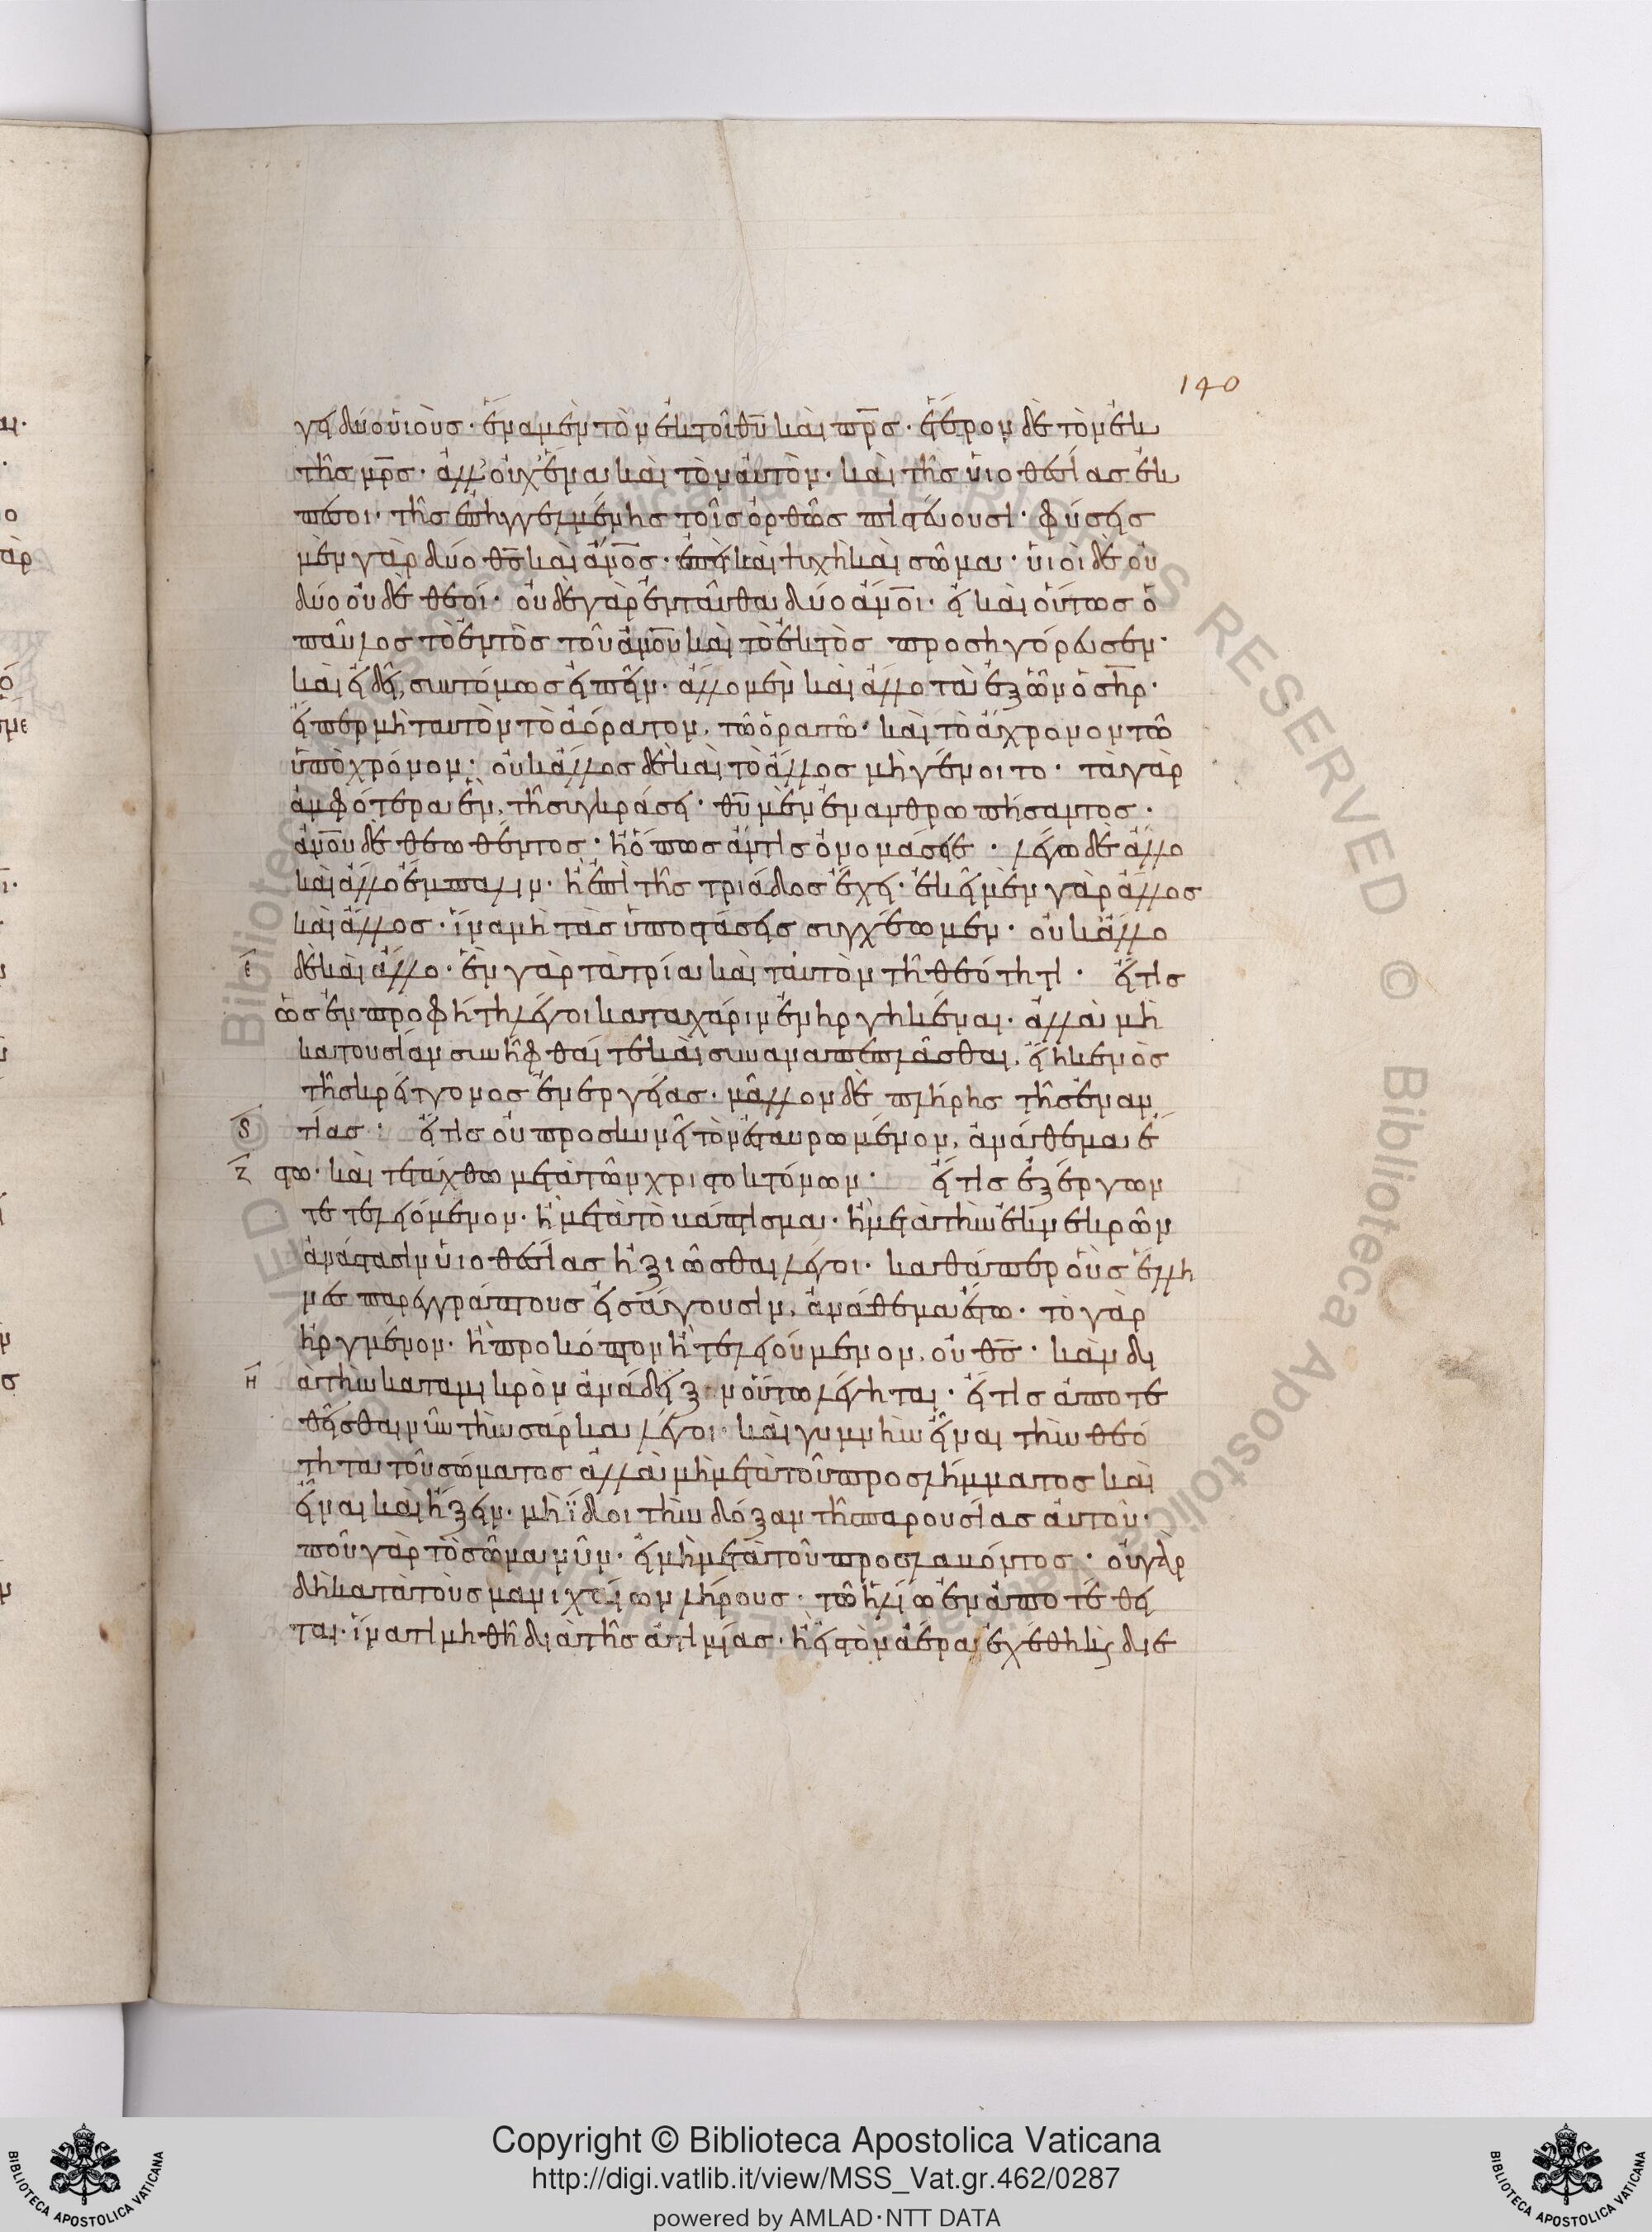 140
γει δύο υἱοὺς· ἕνα μὲν τὸν ἐκ τοῦ θ̅υ̅ καὶ π̅ρ̅ς̅· ἕτερον δὲ τὸν ἐκ
τῆς μ̅ρ̅ς̅· ἀλλ' οὐχ' ἕνα καὶ τὸν αὐτὸν· καὶ τῆς υἱοθεσίας ἐκ
πέσοι· τῆς ἐπηγγελμένης τοῖς ὀρθῶς πιστεύουσι· φύσεις
μὲν γὰρ δύο θ̅ς̅ καὶ ἄν̅ο̅ς̅· ἐπεὶ καὶ ψυχὴ καὶ σῶμα· υἱοὶ δὲ οὐ
δύο οὐδὲ θεοί· οὐδὲ γὰρ ἐνταῦθα δύο ἄν̅ο̅ι̅· εἰ καὶ οὕτως ὁ
παῦλος τὸ ἐντὸς τοῦ ἀν̅ο̅υ̅ καὶ τὸ ἐκτὸς προσηγόρευσεν·
καὶ εἰ δεῖ συντόμως εἰπεῖν· ἄλλο μὲν καὶ ἄλλο τὰ ἐξ ὧν ὁ σ̅η̅ρ̅·
εἴπερ μὴ ταυτὸν τὸ ἀόρατον, τῶ ὁρατῶ· καὶ τὸ ἄχρονον τῶ
ὑπὸ χρόνον· οὐκ ἄλλος δὲ καὶ τὸ ἄλλος μὴ γένοιτο· τὰ γὰρ
ἀμφότερα ἓν, τῆ συγκράσει· θ̅υ̅ μὲν ἐνανθρωπήσαντος·
ἀν̅ο̅υ̅ δὲ θεωθέντος· ἢ ὅπως ἄν τις ὀνομάσειε· λέγω δὲ ἄλλο
καὶ ἄλλο ἔμπαλιν· ἢ ἐπὶ τῆς τριάδος ἔχει· ἐκεῖ μὲν γὰρ ἄλλος
καὶ ἄλλος· ἵνα μὴ τὰς ὑποστάσεις συγχέωμεν· οὐκ ἄλλο
ε δὲ καὶ ἄλλο· ἓν γὰρ τὰ τρία καὶ ταυτὸν τῆ θεότητι· εἴ τις
ὡς ἐν προφήτη λέγοι κατα χάριν ἐνηργηκέναι· ἀλλὰ μὴ
κατουσίαν συνῆφθαί τε καὶ συναναπεπλᾶσθαι, εἴη κενὸς
τῆς κρείττονος ἐνεργείας· μᾶλλον δὲ πλήρης τῆς ἐναν
ϛ τίας· εἴ τις οὐ προσκυνεῖ τὸν ἐσταυρωμένον, ἀνάθεμα ἔ
ζ στω· καὶ τετάχθω μετὰ τῶν χριστοκτόνων· εἴ τις ἐξ ἔργων
τετελειόμενον· ἢ μετὰ τὸ βάπτισμα· ἢ μετὰ τὴν ἐκ νεκρῶν
ἀνάστασιν υἱοθεσίας ἠξιῶσθαι λέγοι· καθάπερ οὓς ἕλλη
νες παρεγγράπτους εἰσάγουσιν, ἀνάθεμα ἔστω· τὸ γὰρ
ἠργμένον· ἢ προκόπτον ἢ τελειούμενον, οὐ θ̅ς̅· κἂν δι
η ὰ τὴν κατα μικρὸν ἀνάδειξιν οὕτω λέγηται· εἴ τις ἀποτε
θεῖσθαι νῦν τὴν σάρκα λέγοι· καὶ γυμνὴν εἶναι τὴν θεό
τητα τοῦ σώματος ἀλλὰ μὴ μετὰ τοῦ προσλήμματος καὶ
εἶναι καὶ ἥξειν· μὴ ἴδοι τὴν δόξαν τῆς παρουσίας αὐτοῦ·
ποῦ γὰρ τὸ σῶμα νῦν· εἰ μὴ μετὰ τοῦ προσλαβόντος· οὐ γὰρ
δὴ κατὰ τοὺς μανιχαίων λήρους· τῶ ἡλίω ἐναποτέθει
ται· ἵνα τιμηθῆ διὰ τῆς ἀτιμίας· ἢ εἰς τὸν ἀέρα ἐχέθη κ(αὶ) διε
Copyright © Biblioteca Apostolica Vaticana
http://digi.vatlib.it/view/MSS_Vat.gr.462/0287
powered by AMLAD·NTT DATA